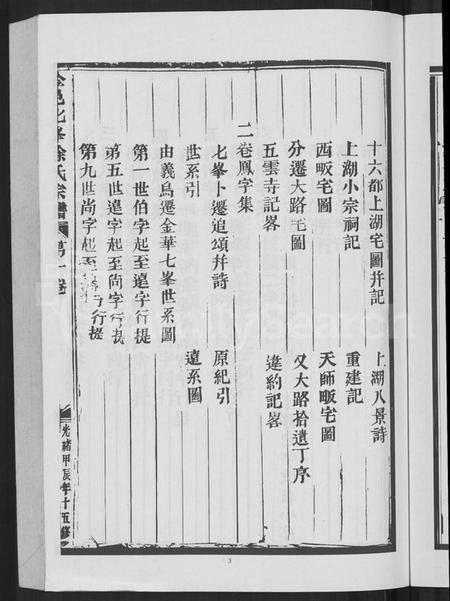 十六都上湖宅圖幷記 上湖八景詩
上湖小宗祠記 重建記
西畈宅圖 天師畈宅圖
分遷大路宅圖 又大路拾遺丁序
五雲寺記畧 違約記畧
二卷鳳字集
七峯卜遷追頌幷詩 原紀引
世系引 遠系圖
由義烏遷金華七峯世系圖
第一世伯字起至遠字行提
第五世遠字起至尚字行提
第九世尚字起至 字行提
邑北峯徐氏宗譜 第一卷
光緒甲辰年十五修
3